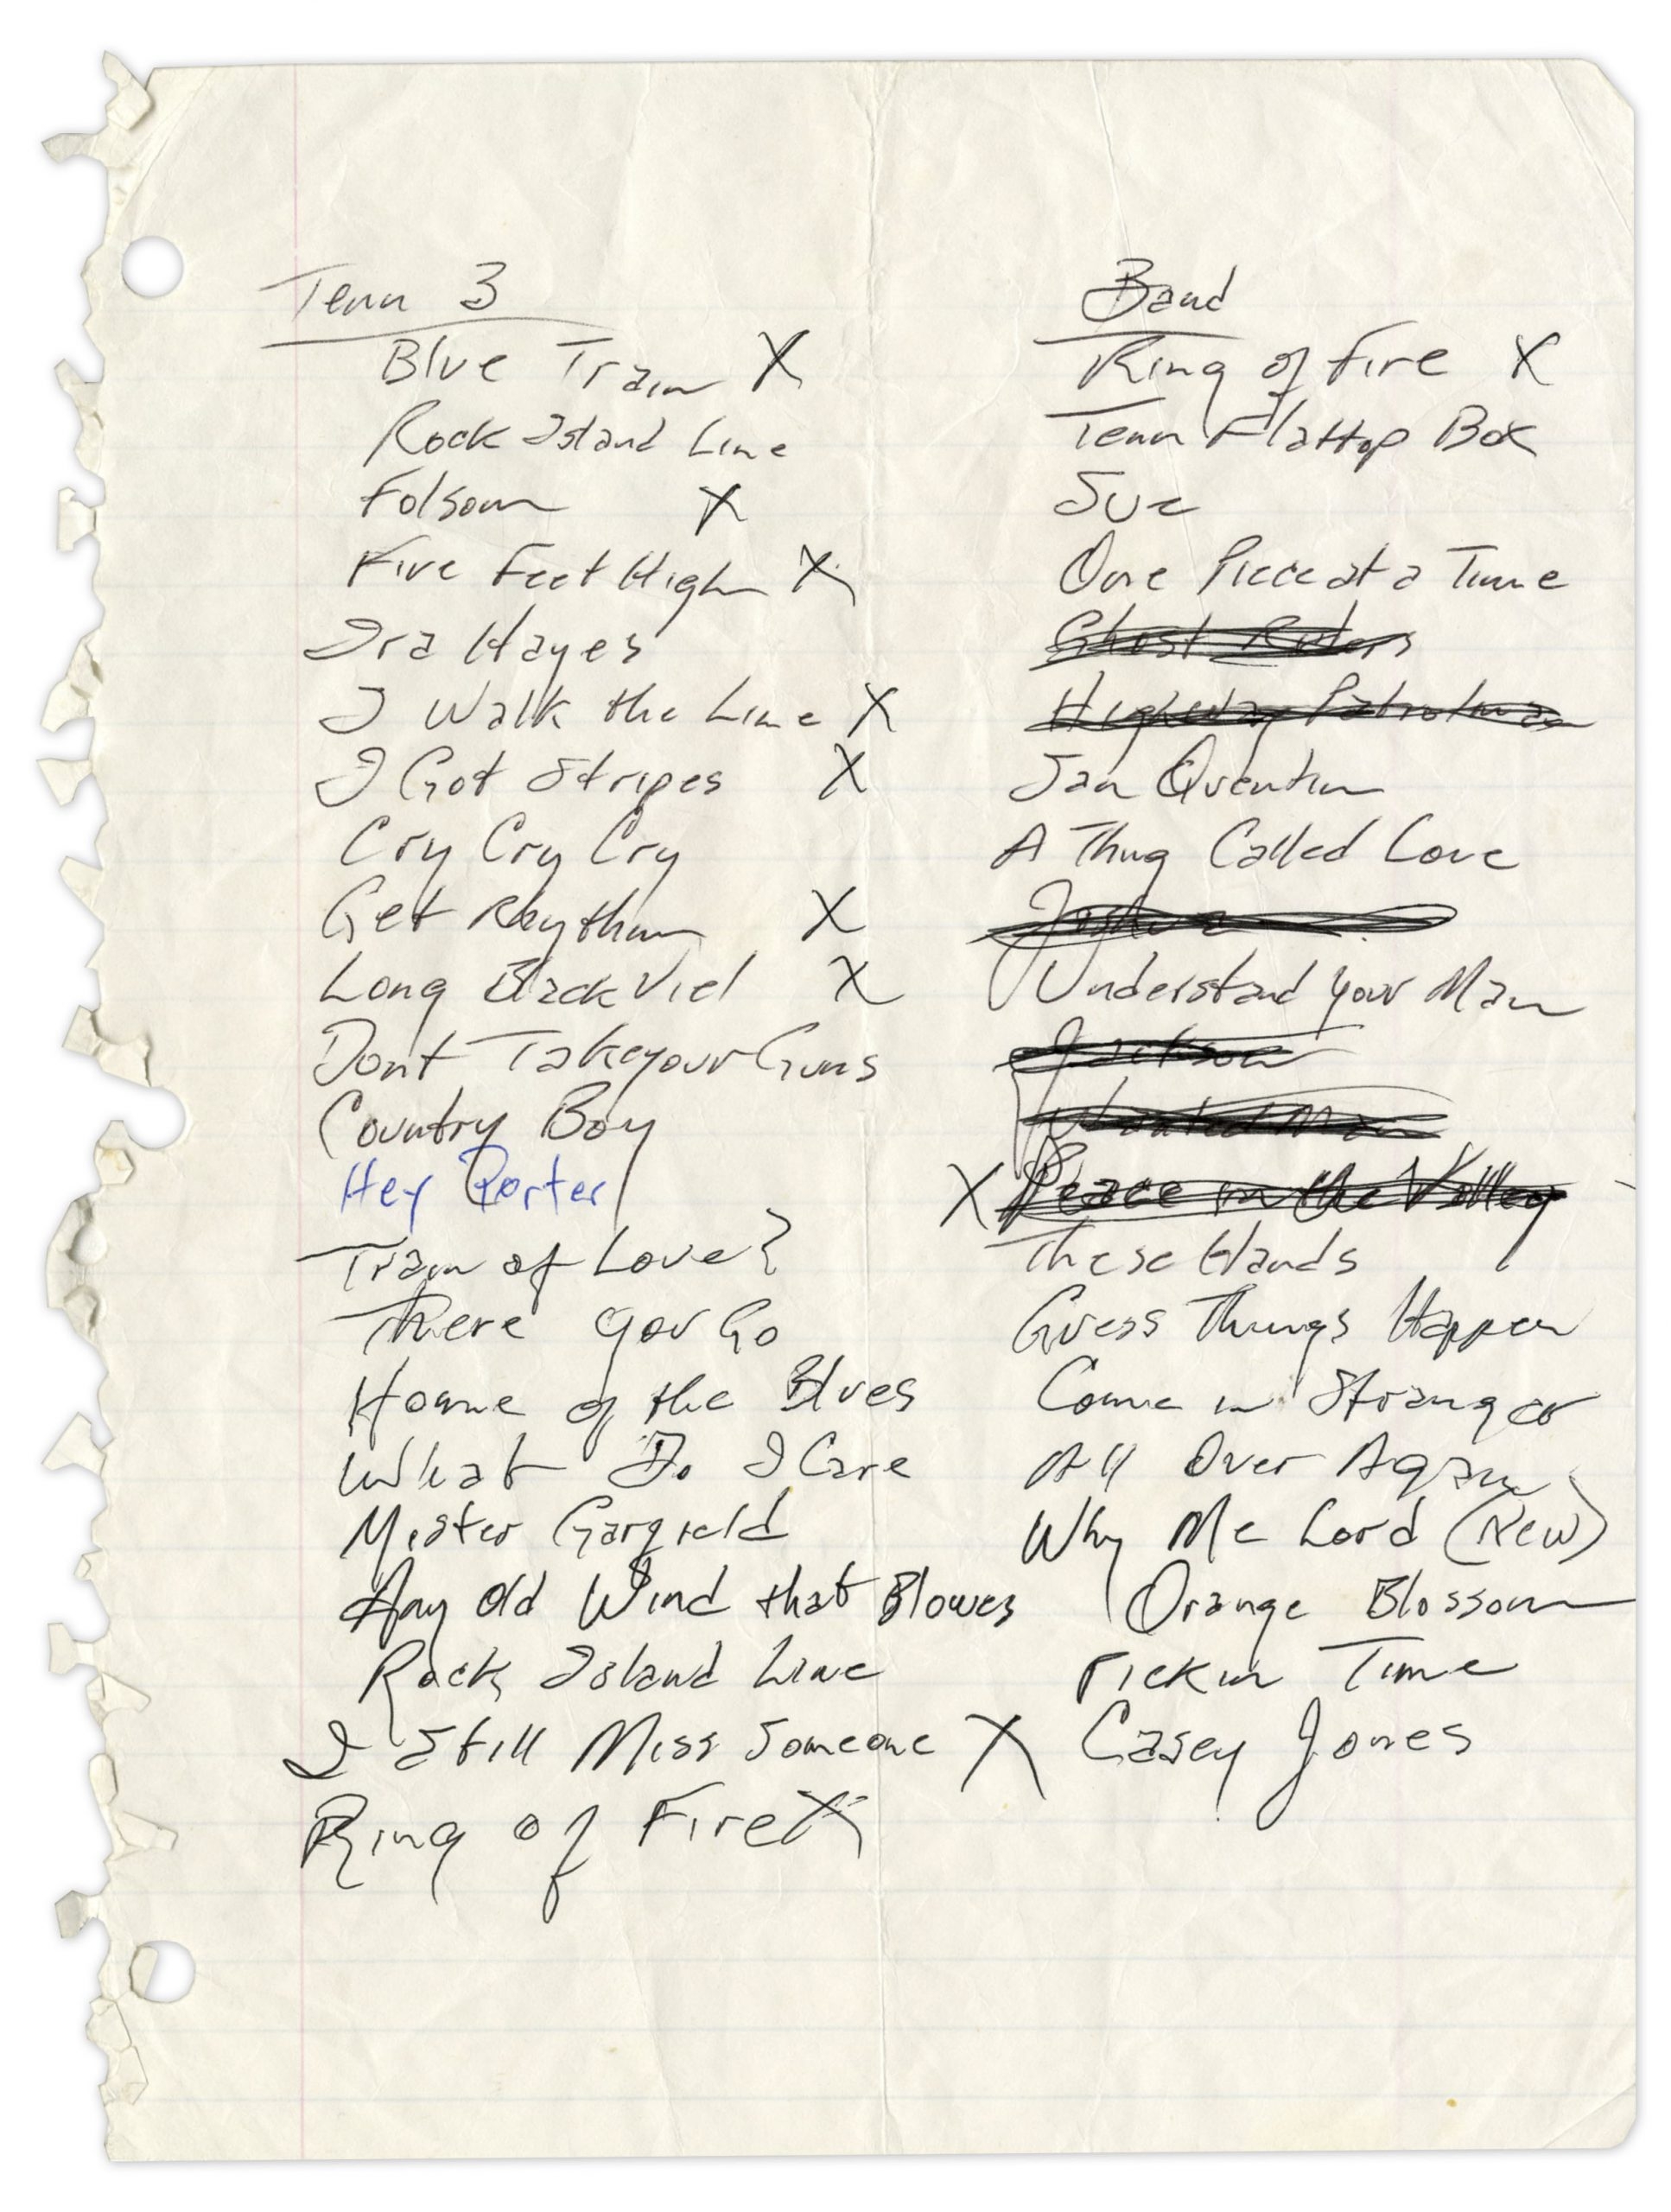 Tenn 3
Blue Train X
Rock Island Line
Folsom X
Five Feet High X
Ira Hayes
I Walk the Line X
I Got Stripes X
Cry Cry Cry
Get Rhythm X
Long Black Viel X
Dont Take your Guns
Country Boy
Hey Porter
Train of Love?
There you Go
Home of the Blues
What Do I Care
Mister Garfield
Any Old Wind that Blowes
Rock Island Line
I Still Miss Someone X
Ring of Fire X
Band
Ring of Fire X
Tenn Flattop Box
Sue
One Piece at a Time
Ghost Riders
Highway Patrolman
San Quentin
A Thing Called Love
Joshua
Understand your Man
Jackson
Wanted Man
X Peace in the Valley
These Hands
Guess Things Happen
Come in Stranger
All Over Again
Why Me Lord (New)
Orange Blossom
Pickin Time
Casey Jones